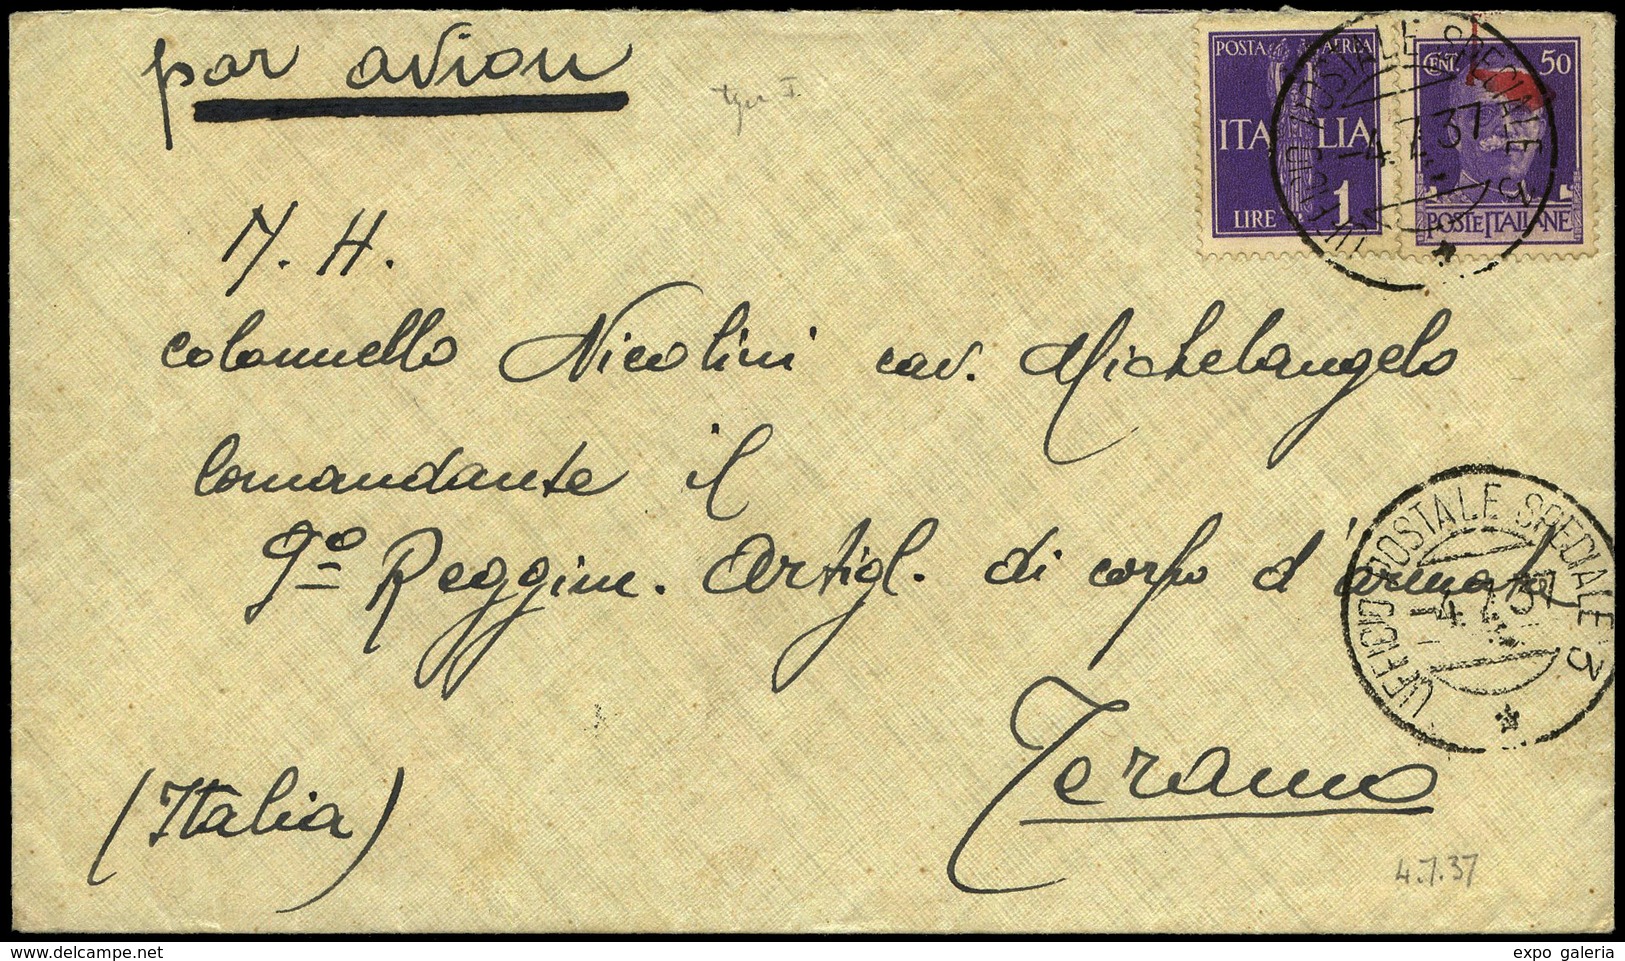 par avion
POSTA AEREA
ITALIA
LIRE 1
CENT. 50
POSTE ITALIANE
UFFICIO POSTALE SPECIALE 3
-4.7.37
N. H.
colonnello Nicolini cav. Michelangelo
Comandante il
9º Reggim. Artigl. di corpo d'armata
UFFICIO POSTALE SPECIALE 3
-4.7.37
Teramo
(Italia)
4.7.37
www.delcampe.net
expo galeria